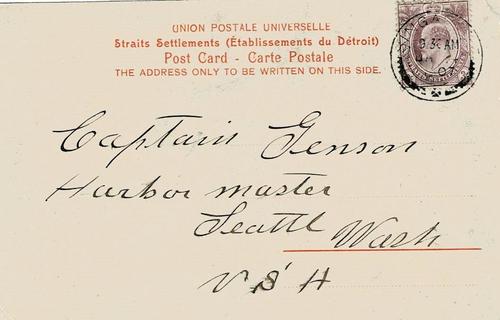 UNION POSTALE UNIVERSELLE
Straits Settlements (Établissements du Détroit)
Post Card - Carte Postale
THE ADDRESS ONLY TO BE WRITTEN ON THIS SIDE.
Captain Genson
Harbor master
Seattl Wash
U S A